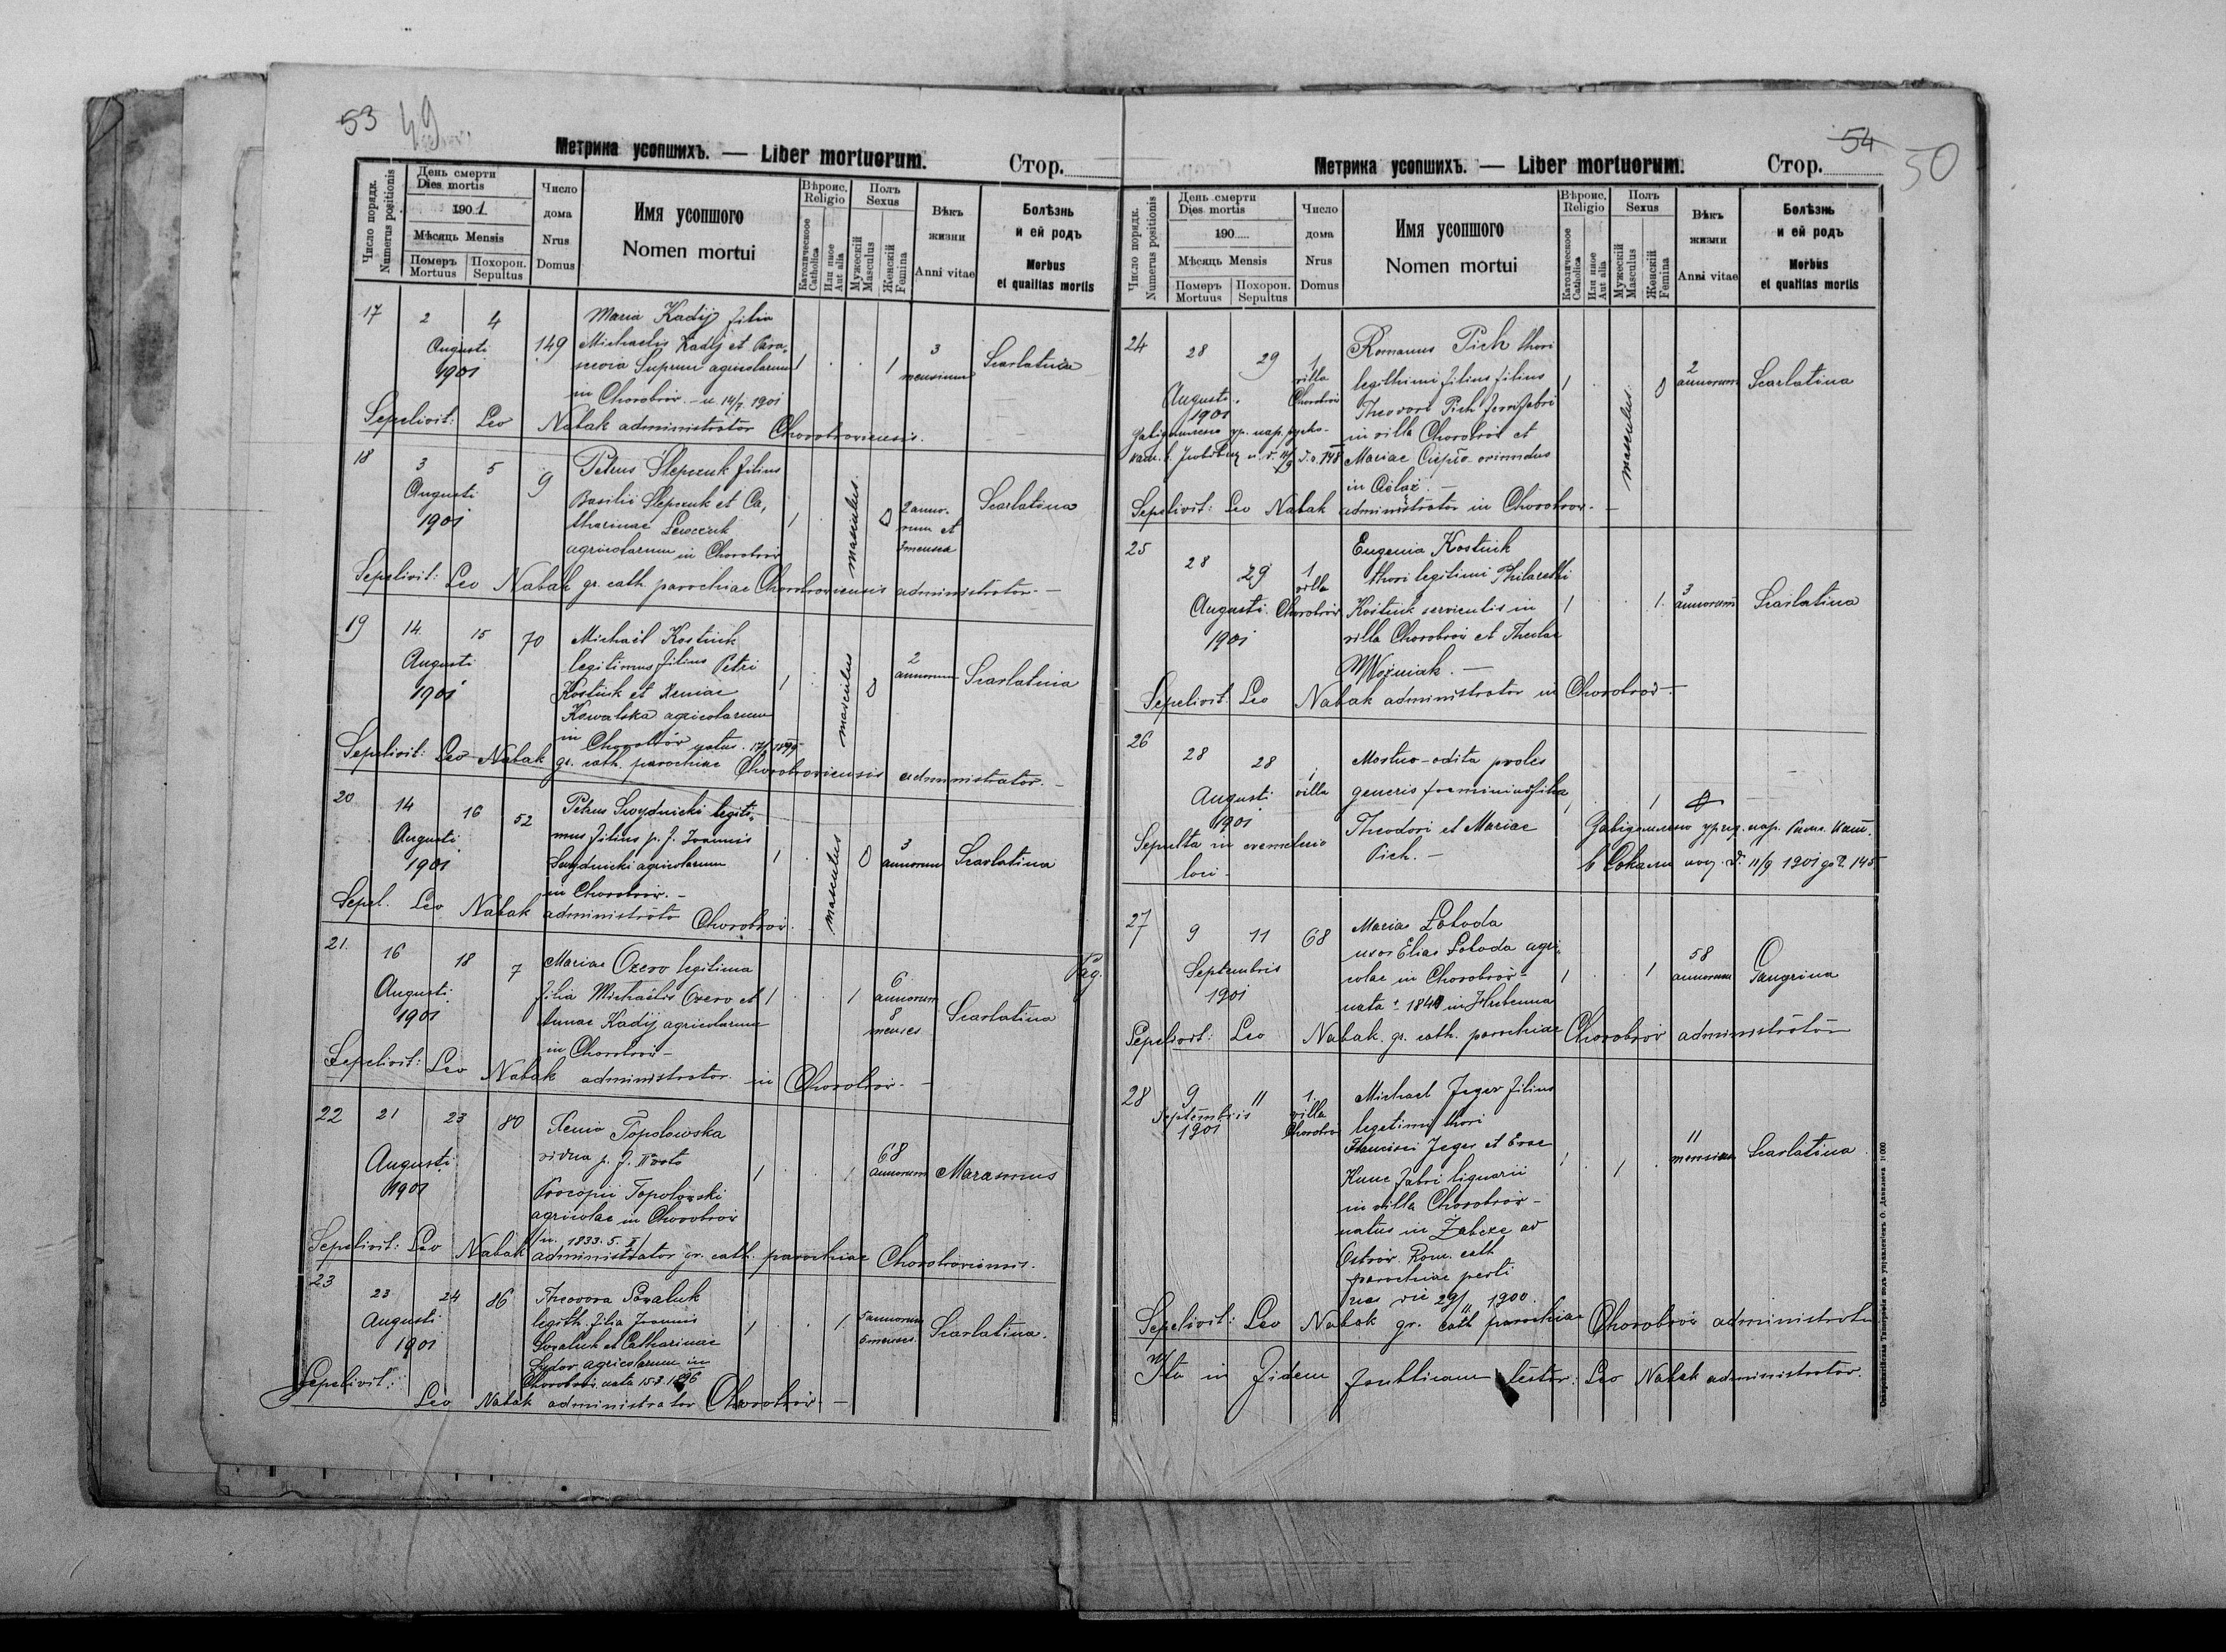 53 49
Метрика усопшихъ. — Liber mortuorum. Стор.
Число порядк. Numerus positionis
День смерти Dies mortis
1901
Мѣсяць Mensis
Померъ Mortuus
Похорон. Sepultus
Число дома Nrus Domus
Имя усопшого Nomen mortui
Вѣроис. Religio
Католическое Catholica
Или иное Aut alia
Полъ Sexus
Мужескій Masculus
Женскій Femina
Вѣкъ жизни Anni vitae
Болѣзнь и ей родъ Morbus et qualitas mortis
17 2 4 Augusti 1901 149
Maria Kadij filia
Michaelis Kadij et Para-
scevia Suprun agricolarum
in Chorobrów - n. 14/7 1901
1 . . 1 3 mensium Scarlatina
Sepelivit: Leo Nabak administrator Chorobroviensis.
18 3 5 Augusti 1901 9
Petrus Slepczuk filius
Basilii Slepczuk et Ca-
tharinae Lewczuk
agricolarum in Chorobrów
1 . masculus. 0 2 anno-
rum et
3 menses
Scarlatina
Sepelivit: Leo Nabak gr. cath. parochiae Chorobroviensis administrator. —
19 14 15 Augusti 1901 70
Michaël Kostiuk
legitimus filius Petri
Kostiuk et Xeniae
Kowalska agricolarum
in Chorobrów natus.
1 . masculus 0 2 annorum Scarlatina
Sepelivit: Leo Nabak gr. cath. parochiae Chorobroviensis administrator. —
20 14 16 Augusti 1901 52
Petrus Swydnicki legiti-
mus filius p. f. Ioannis
Swydnicki agricolarum
in Chorobrów. —
1 . masculus 0 3 annorum Scarlatina
Sepel. Leo Nabak administrator Chorobrów.
21. 16 18 Augusti 1901 7
Mariae Ozero legitima
filia Michaëlis Ozero et
Annae Kadij agricolarum
in Chorobrów —
1 . . 1 6 annorum
8 menses
Scarlatina
Sepelivit: Leo Nabak administrator in Chorobrów. —
22 21 23 Augusti 1901 80
Xenia Topolowska
vidua p. f.
Procopii Topolowski
agricolae in Chorobrów
n. 1833. 5. I
1 . . 1 68 annorum Marasmus
Sepelivit: Leo Nabak administrator gr. cath. parochiae Chorobroviensis.
23 23 24 Augusti 1901 86
Theodora Sovaluk
legith. filia Joannis
Sovaluk et Catharinae
Sydor agricolarum in
Chorobrów nata
1 . . 1 5 annorum
6 menses
Scarlatina.
Sepelivit: Leo Nabak administrator Chorobrów. —
Pag.
54 50
Метрика усопшихъ. — Liber mortuorum. Стор.
Число порядк. Numerus positionis
День смерти Dies mortis
190
Мѣсяць Mensis
Померъ Mortuus
Похорон. Sepultus
Число дома Nrus Domus
Имя усопшого Nomen mortui
Вѣроис. Religio
Католическое Catholica
Или иное Aut alia
Полъ Sexus
Мужескій Masculus
Женскій Femina
Вѣкъ жизни Anni vitae
Болѣзнь и ей родъ Morbus et qualitas mortis
24 28 29 Augusti 1901 1 villa Chorobrów
Romanus Pich thori
legithimi filius filius
Theodori Pich ferrifabri
in villa Chorobrów et
Mariae oriundus
in
1 . masculus. 0 2 annorum Scarlatina
Sepelivit: Leo Nabak administrator in Chorobrów. —
25 28 29 Augusti 1901 1 villa Chorobrów
Eugenia Kostiuk
thori legitimi Philaretti
Kostiuk servientis in
villa Chorobrów et Theclae
Woźniak. —
1 . . 1. 3 annorum Scarlatina
Sepelivit: Leo Nabak administrator in Chorobrów —
26 28 28 Augusti 1901 1 villa
Mortuo-edita proles
generis foemininis filia
Theodori et Mariae
Pich. —
Sepulta in coemeterio
loci —
11/9 1901 145
27 9 11 Septembris 1901 68
Maria Łoboda
uxor Elias Łoboda agri-
colae in Chorobrów —
nata
1 . . 1 58 annorum Gangrina
Sepelivit: Leo Nabak gr. cath. parochiae Chorobrów administrator
28 9 11 Septembris 1901 1. villa Chorobrów
Michael Jeger filius
legitimus thori
Francisci Jeger et Evae
Kunc fabri lignarii
in villa Chorobrów —
natus in Zabcze ad
Ostrów Rom. cath
parochiae perti
nes die 29/11 1900.
1 . 1 . 11 mensium Scarlatina
Sepelivit: Leo Nabak gr. cath parochiae Chorobrów administrator
Ita in fidem publicam testor: Leo Nabak administrator.